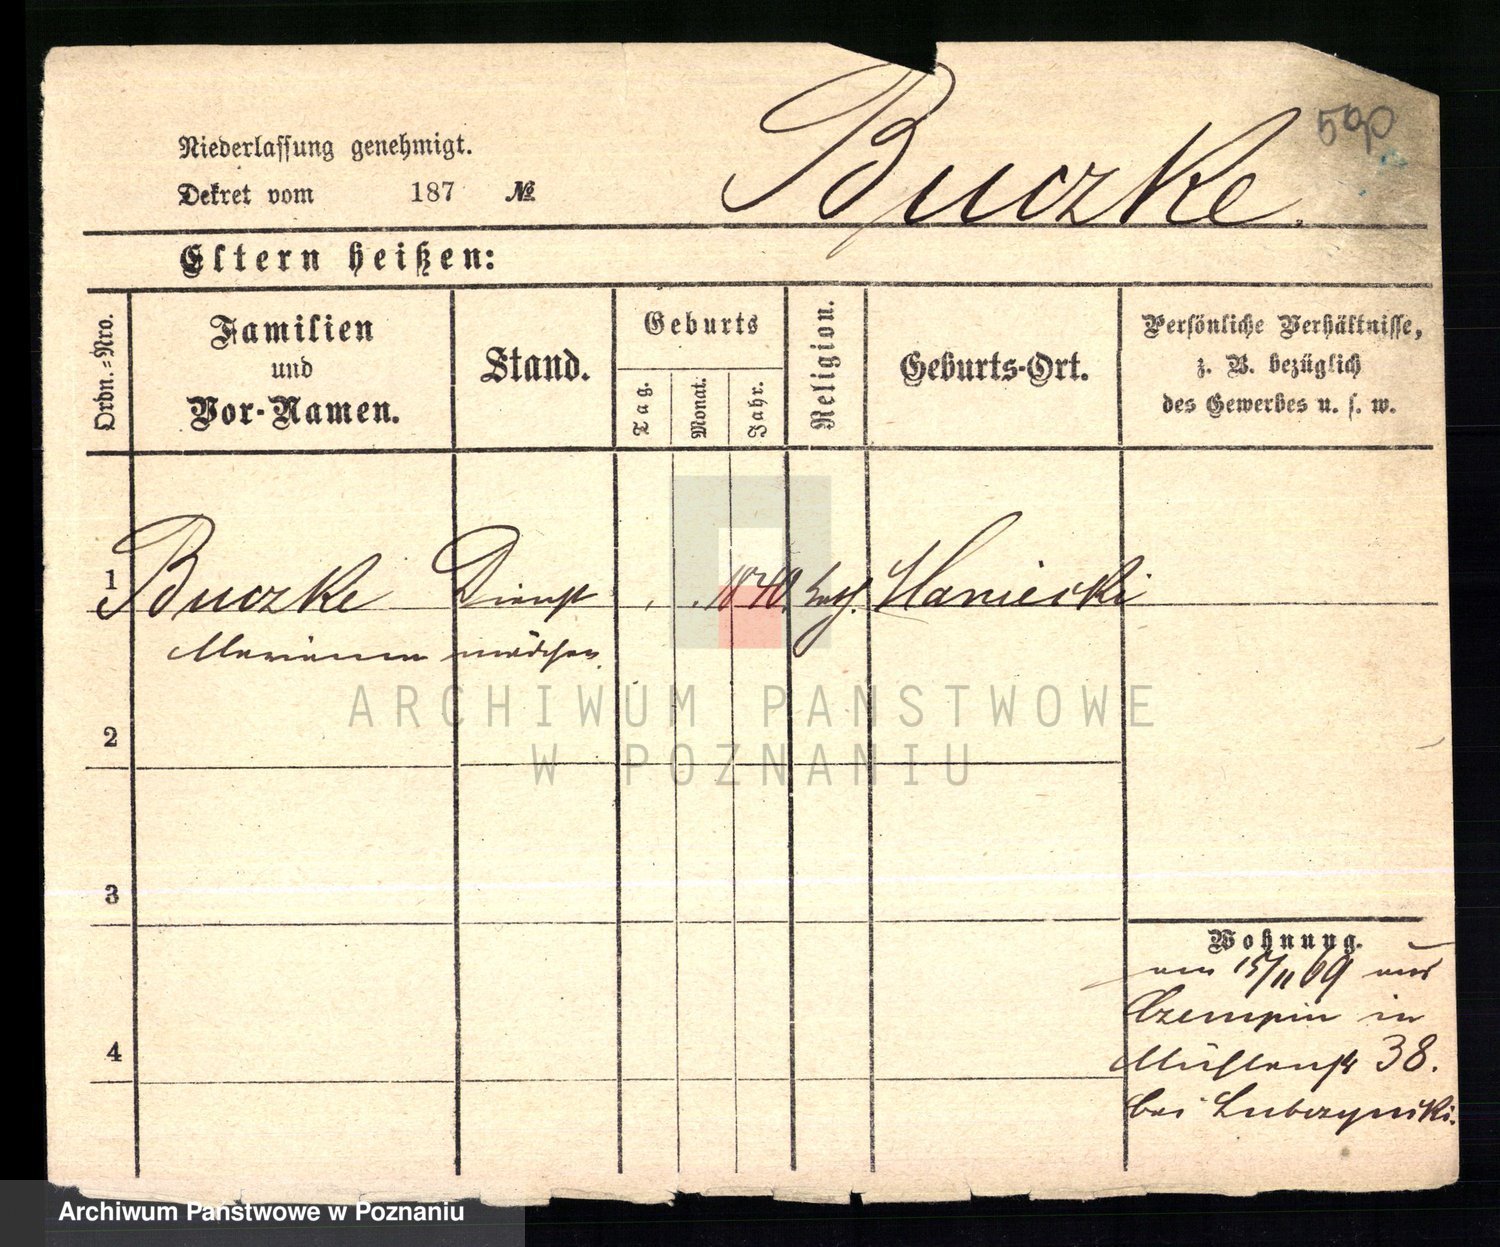 590
Buczke.
Niederlassung genehmigt.
Dekret vom 187 №
Eltern heißen:
Ordn.=Nro.
Familien
und
Vor-Namen.
Stand.
Geburts
Tag.
Monat.
Jahr.
Religion.
Geburts-Ort.
Persönliche Verhältnisse,
z. B. bezüglich
des Gewerbes u. s. w.
1 Buczke Dienst 1840. kath.
Marianna mädchen
2
3
4
Wohnung.
am 15/11 69 aus
Czempin in
Mühlenstr 38.
bei Lubczynski.
ARCHIWUM PAŃSTWOWE
W POZNANIU
Archiwum Państwowe w Poznaniu